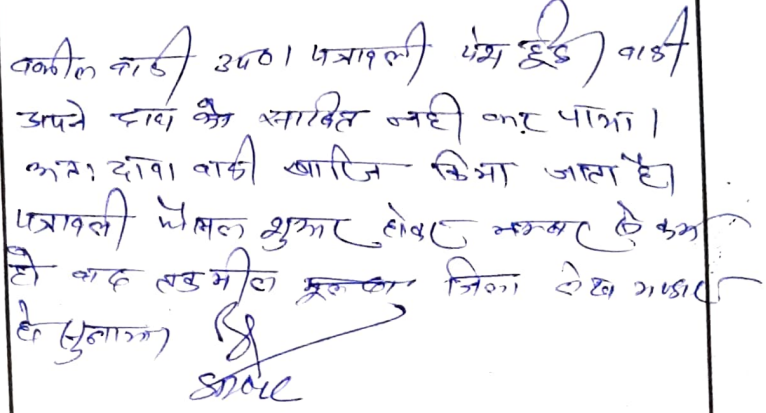 वकील वादी उप0। पत्रावली पेश हुई। वादी
अपने दावा को साबित नही कर पाया।
अतः दावा वादी खारिज किया जाता है।
पत्रावली फैसल शुमार होकर नम्बर से कम
हो बाद तकमील जिला लेख भण्डार
हो